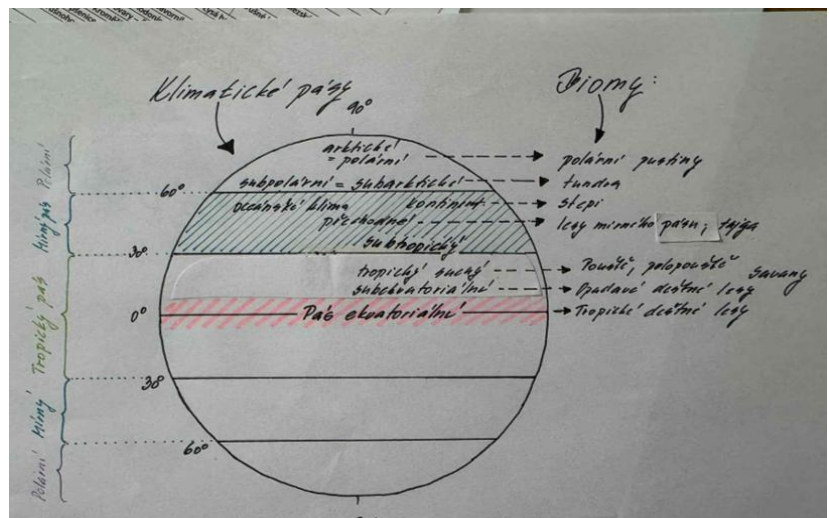 Klimatické pásy
Biomy:
90°
arktické
= polární
polární pustiny
60°
subpolární = subarktické
tundra
oceánské klima
kontinent
stepi
přechodné
lesy mírného pásu, tajga
subtropický
30°
tropický suchý
Pouště, polopouště
savany
subekvatoriální
Opadavé deštné lesy
0°
Pás ekvatoriální
Tropické deštné lesy
30°
60°
Polární
Mírný pás
Tropický pás
Mírný
Polární